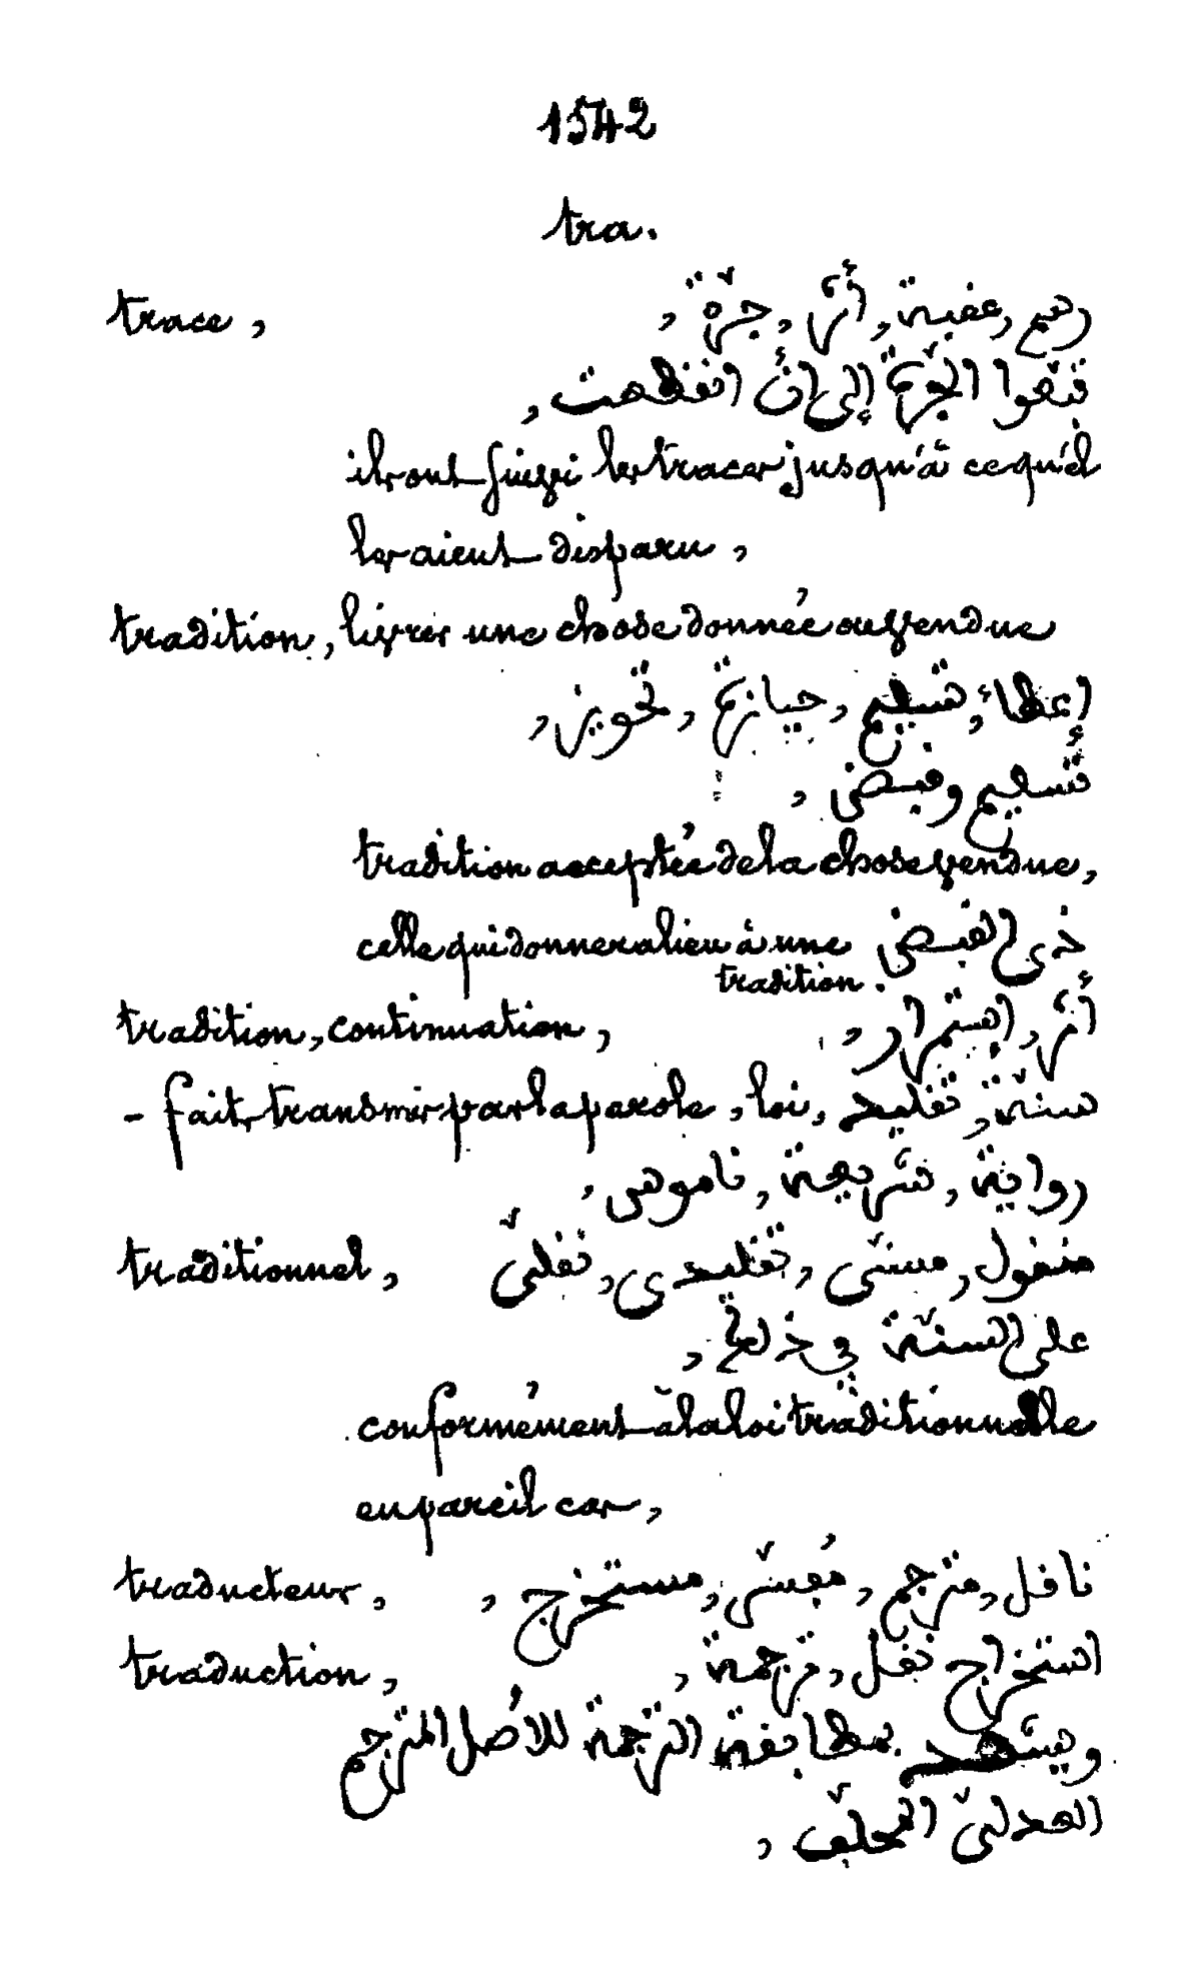 1542
tra.
trace, رسم, عقبة, أثر, جرّة,
تبعوا الجرّة إلى أن انقطعت,
ils ont suivi les traces jusqu'à ce qu'el
les aient disparu,
tradition, livrer une chose donnée ou vendue
إعطاء, تسليم, حيازة, تحويز,
تسليم وقبض,
tradition acceptée de la chose vendue,
celle qui donnera lieu à une القبض
tradition.
tradition, continuation, أثر, استمرار,
- faits transmis par la parole, loi, سنّة, تقليد,
رواية, شريعة, ناموس,
traditionnel, منقول, سنّي, تقليدي, نقلي
على السنّة في ذلك,
conformément à la loi traditionnelle
en pareil cas,
traducteur, ناقل, مترجم, مفسّر, مستخرج,
traduction, استخراج نقل, ترجمة,
ويشهد بمطابقة الترجمة للأصل المترجم
العدلي المحلّف,